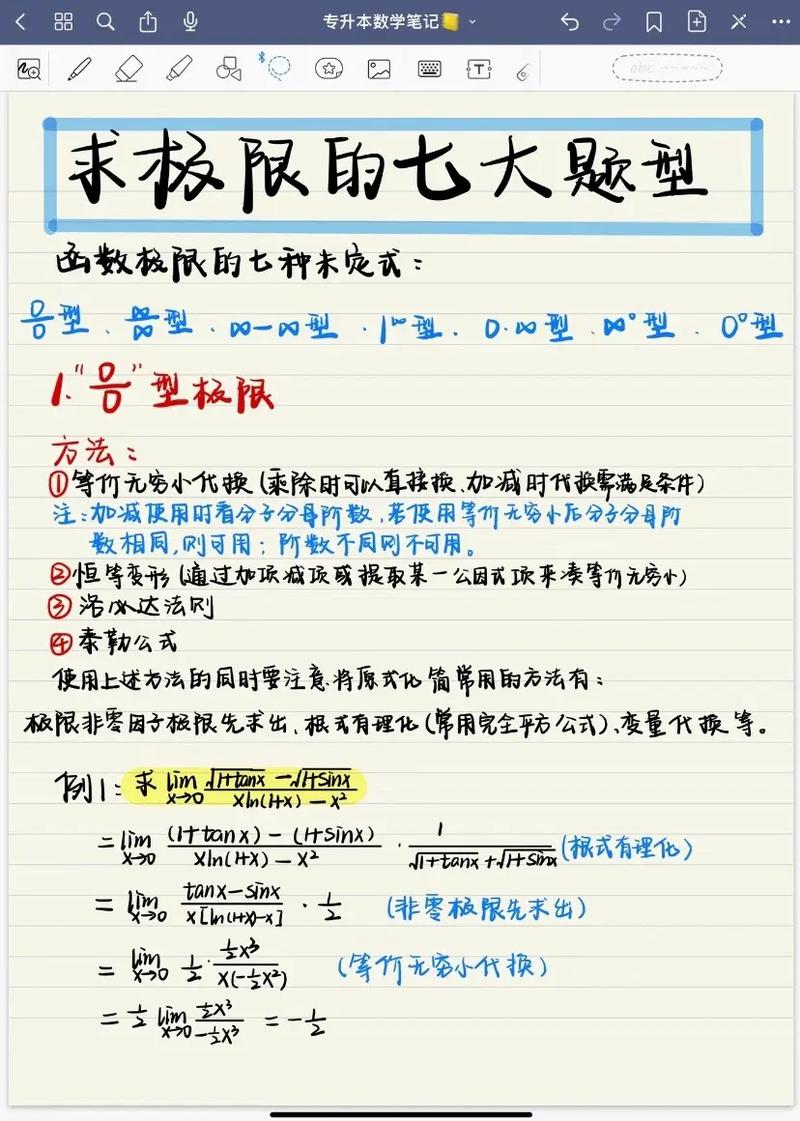 专升本数学笔记
abc
求极限的七大题型
函数极限的七种未定式：
0/0型、∞/∞型、∞-∞型、1^∞型、0·∞型、∞^0型、0^0型
1."0/0"型极限
方法：
①等价无穷小代换(乘除时可以直接换、加减时代换需满足条件)
注：加减使用时看分子分母阶数,若使用等价无穷小后分子分母阶
数相同,则可用；阶数不同则不可用。
②恒等变形(通过加项减项或提取某一公因式项来凑等价无穷小)
③洛必达法则
④泰勒公式
使用上述方法的同时要注意将原式化简常用的方法有：
极限非零因子极限先求出、根式有理化(常用完全平方公式)、变量代换等。
例1:求 lim x→0 (√(1+tanx) - √(1+sinx))/(xln(1+x) - x²)
= lim x→0 ((1+tanx) - (1+sinx))/(xln(1+x) - x²) · 1/(√(1+tanx) + √(1+sinx)) (根式有理化)
= lim x→0 (tanx-sinx)/(x[ln(1+x)-x]) · 1/2 (非零极限先求出)
= lim x→0 1/2 · (1/2x³)/(x(-1/2x²)) (等价无穷小代换)
= 1/2 lim x→0 (1/2x³)/(-1/2x³) = -1/2